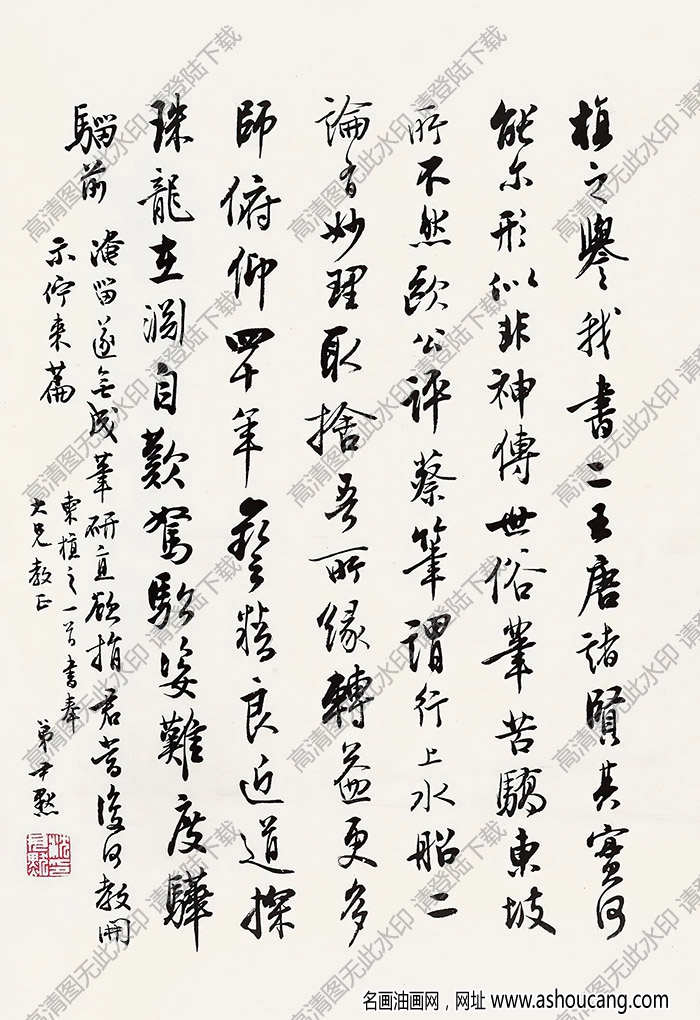 植之譽我書二王唐諸賢其實何
能尔形似非神傳世俗輩苦驕東坡
所不然歐公評蔡筆謂行上水船二
論有妙理取捨吾所緣轉益更多
師俯仰四十年藝精良近道探
珠龍在淵自歎駑駘姿難度驊
騮前
淹留遂無成筆研直欲捐君當復何教開
示佇來篇
柬植之一首書奉
大兄教正
弟尹默
高清图无此水印 请登陆下载
名画油画网，网址 www.ashoucang.com